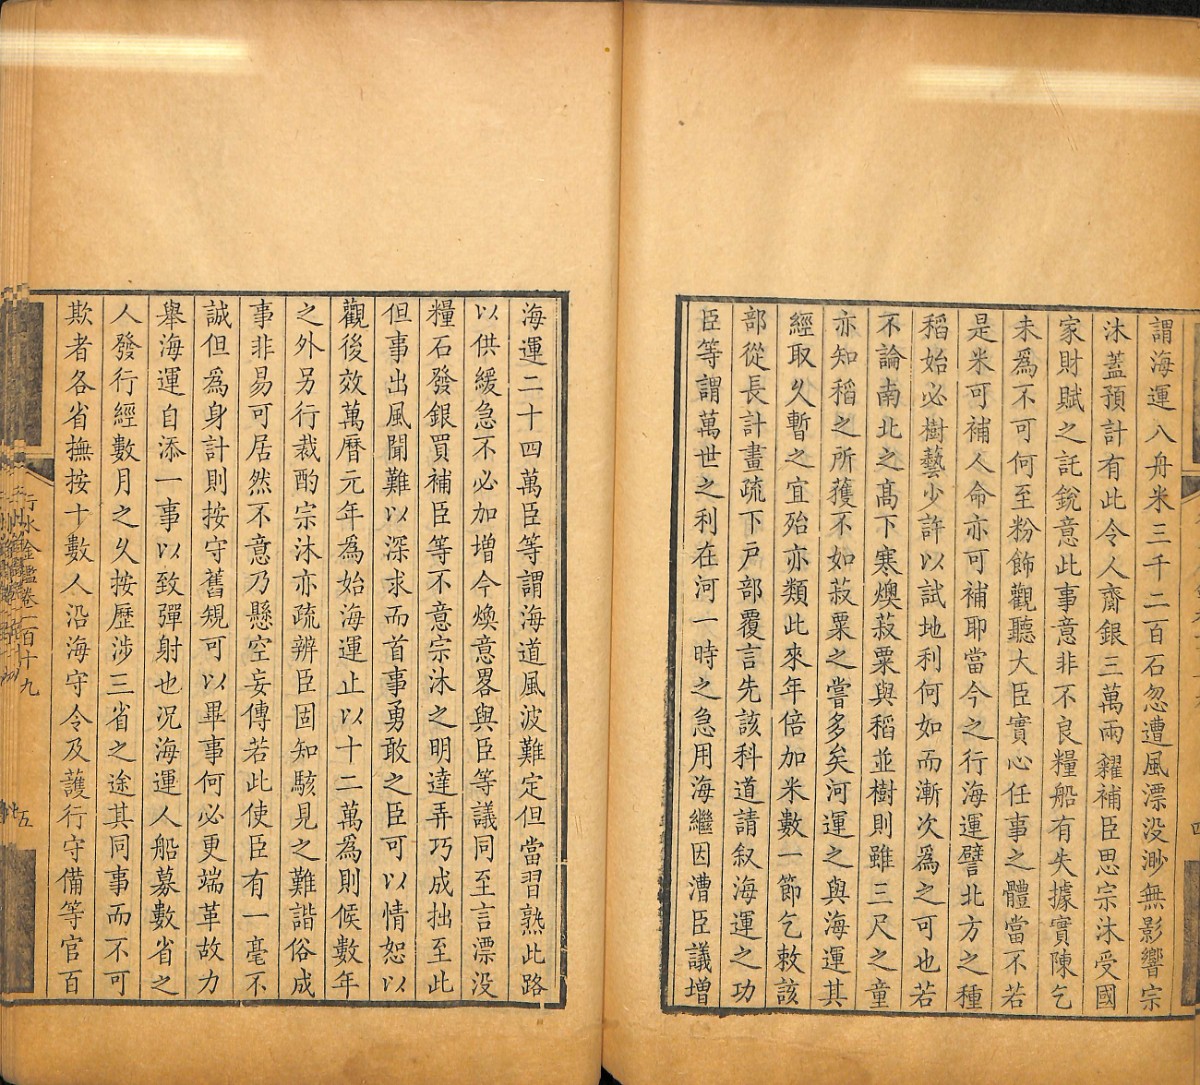 謂海運八舟米三千二百石忽遭風漂没渺無影響宗
沐蓋預計有此令人齎銀三萬兩糴補臣思宗沐受國
家財賦之託銳意此事意非不良糧船有失據實陳乞
未為不可何至粉飾觀聽大臣實心任事之體當不若
是米可補人命亦可補耶當今之行海運譬北方之種
稻始必樹藝少許以試地利何如而漸次為之可也若
不論南北之髙下寒燠菽粟與稻並樹則雖三尺之童
亦知稻之所獲不如菽粟之嘗多矣河運之與海運其
經取久暫之宜殆亦類此來年倍加米數一節乞敕該
部從長計畫疏下户部覆言先該科道請叙海運之功
臣等謂萬世之利在河一時之急用海繼因漕臣議增
海運二十四萬臣等謂海道風波難定但當習熟此路
以供緩急不必加增今煥意畧與臣等議同至言漂没
糧石發銀買補臣等不意宗沐之明達弄巧成拙至此
但事出風聞難以深求而首事勇敢之臣可以情恕以
觀後效萬曆元年為始海運止以十二萬為則候數年
之外另行裁酌宗沐亦疏辨臣固知駭見之難諧俗成
事非易可居然不意乃懸空妄傳若此使臣有一毫不
誠但為身計則按守舊規可以畢事何必更端革故力
舉海運自添一事以致彈射也況海運人船募數省之
人發行經數月之久按歷涉三省之途其同事而不可
欺者各省撫按十數人沿海守令及護行守備等官百
行水金鑑卷一百十九
五